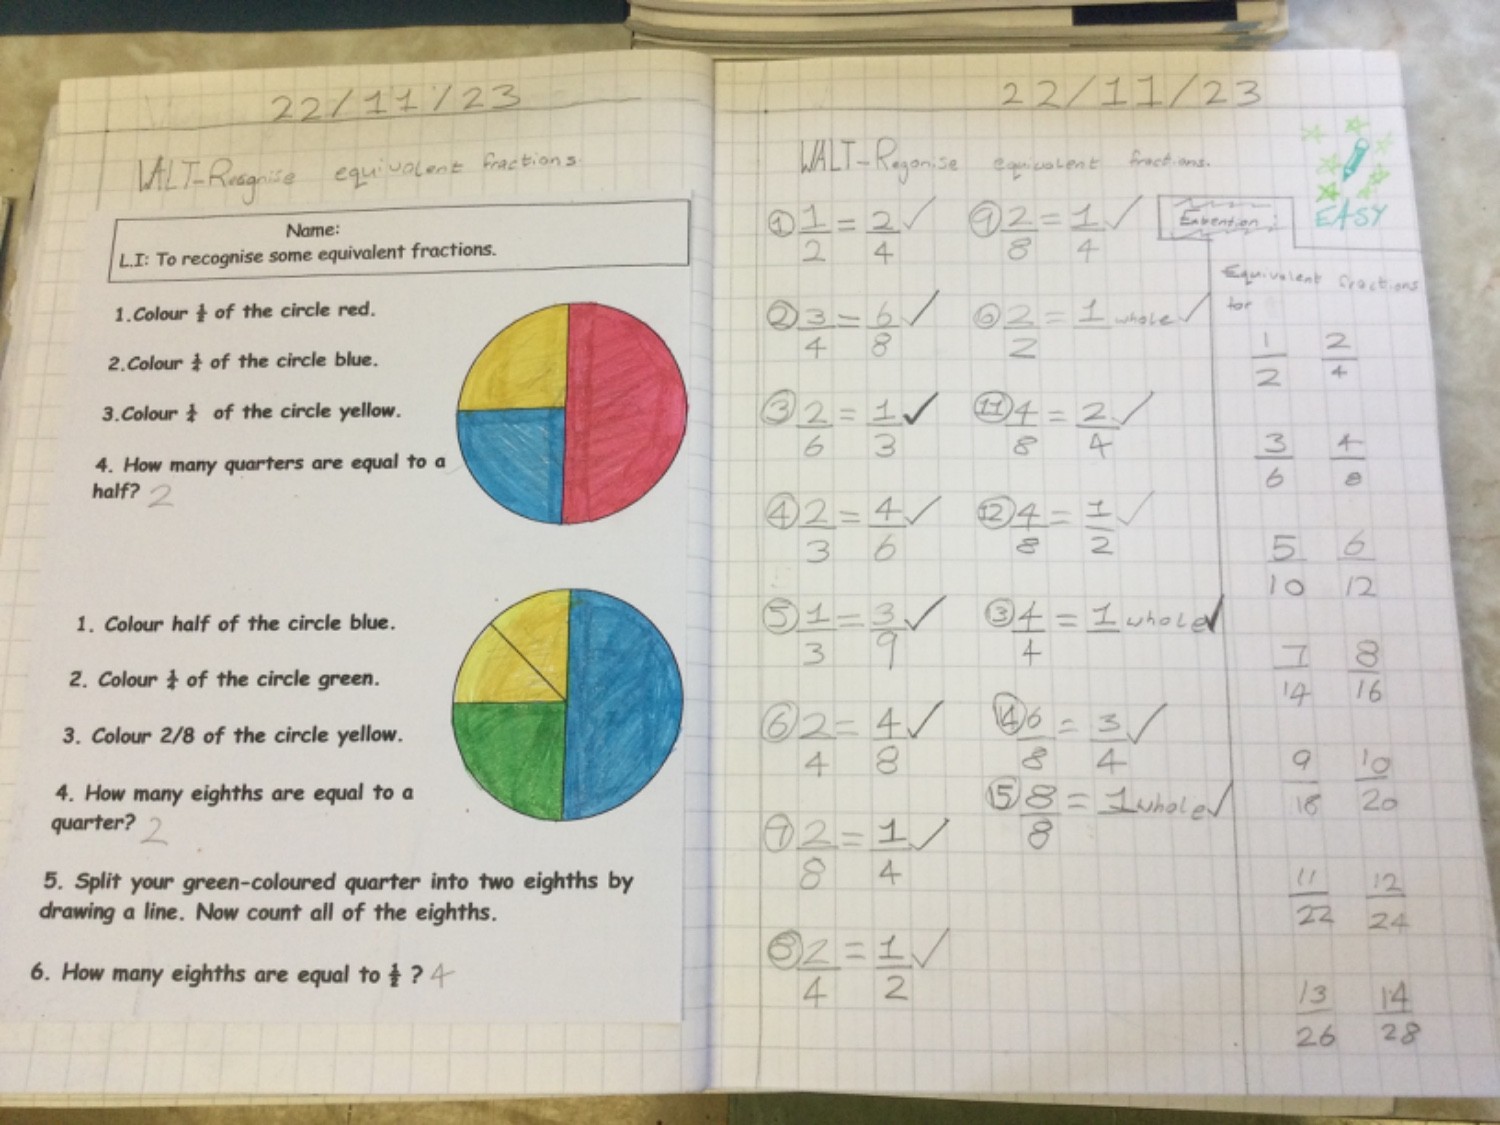 22/11/23
WALT-Recgnise equivalent fractions.
Name:
L.I: To recognise some equivalent fractions.
1.Colour ½ of the circle red.
2.Colour ¼ of the circle blue.
3.Colour ¼ of the circle yellow.
4. How many quarters are equal to a
half? 2
1. Colour half of the circle blue.
2. Colour ¼ of the circle green.
3. Colour 2/8 of the circle yellow.
4. How many eighths are equal to a
quarter? 2
5. Split your green-coloured quarter into two eighths by
drawing a line. Now count all of the eighths.
6. How many eighths are equal to ½ ? 4
22/11/23
WALT-Regonise equivalent fractions.
① 1/2 = 2/4 ✓
② 3/4 = 6/8 ✓
③ 2/6 = 1/3 ✓
④ 2/3 = 4/6 ✓
⑤ 1/3 = 3/9 ✓
⑥ 2/4 = 4/8 ✓
⑦ 2/8 = 1/4 ✓
⑧ 2/4 = 1/2 ✓
⑨ 2/8 = 1/4 ✓
2/2 = 1 whole ✓
⑪ 4/8 = 2/4 ✓
⑫ 4/8 = 1/2 ✓
③ 4/4 = 1 whole ✓
⑭ 6/8 = 3/4 ✓
⑮ 8/8 = 1 whole ✓
EASY
Equivalent fractions
for
1/2 2/4
3/6 4/8
5/10 6/12
7/14 8/16
9/18 10/20
11/22 12/24
13/26 14/28